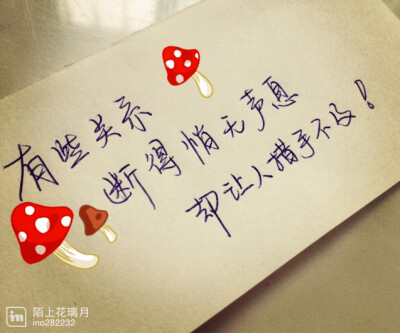 有些关系
断得悄无声息
却让人措手不及！
in 陌上花璃月
ino282232